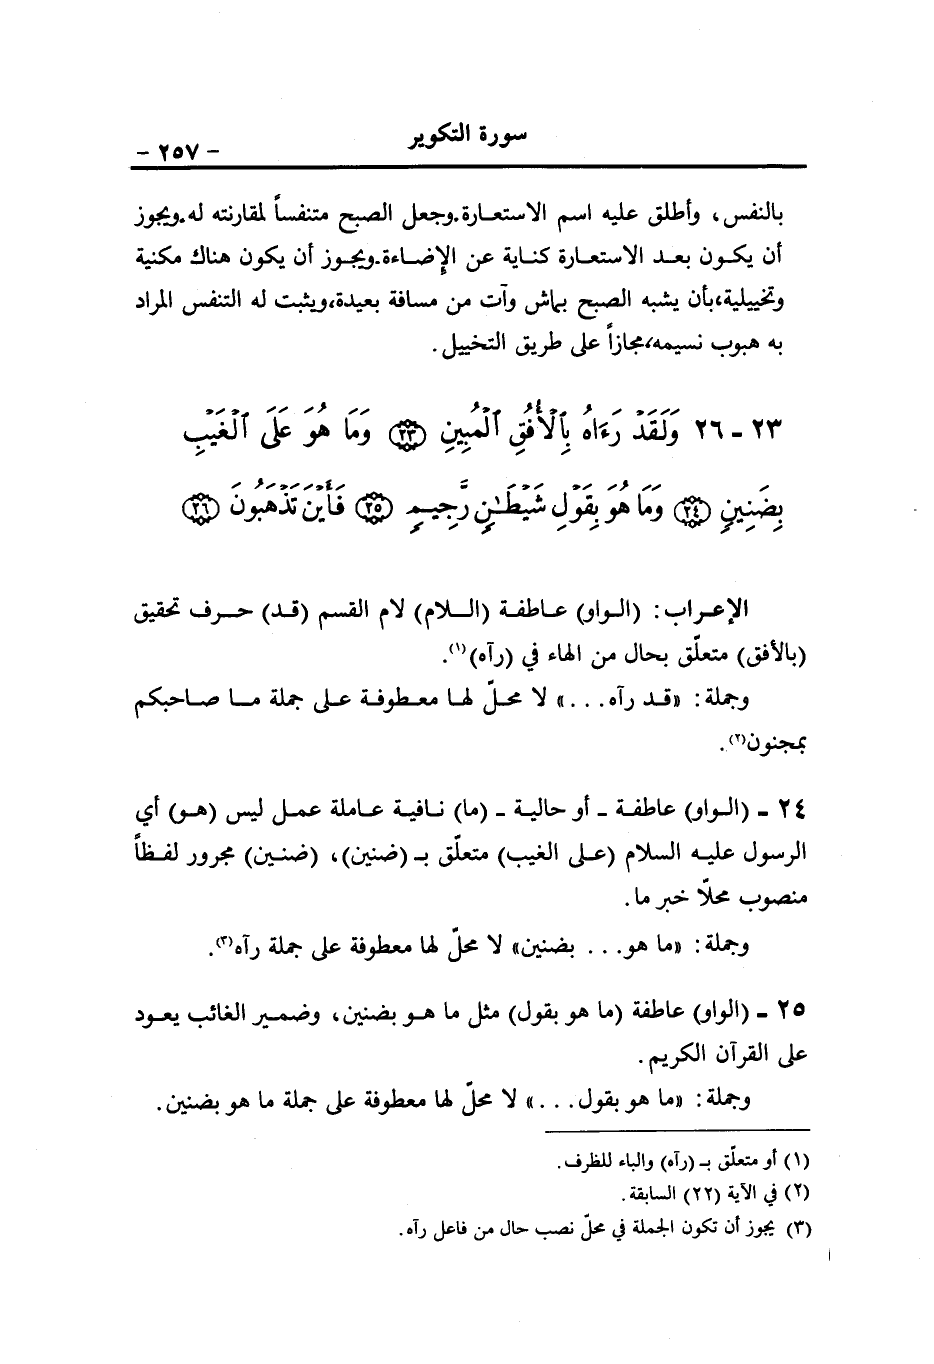 سورة التكوير
- ٢٥٧ -
بالنفس، وأطلق عليه اسم الاستعارة.وجعل الصبح متنفساً لمقارنته له.ويجوز
أن يكون بعد الاستعارة كناية عن الإضاءة.ويجوز أن يكون هناك مكنية
وتخييلية،بأن يشبه الصبح بماش وآت من مسافة بعيدة،ويثبت له التنفس المراد
به هبوب نسيمه،مجازاً على طريق التخييل.
٢٣ - ٢٦ وَلَقَدْ رَءَاهُ بِٱلْأُفُقِ ٱلْمُبِينِ ﴿٢٣﴾ وَمَا هُوَ عَلَى ٱلْغَيْبِ
بِضَنِينٍ ﴿٢٤﴾ وَمَا هُوَ بِقَوْلِ شَيْطَـٰنٍ رَّجِيمٍ ﴿٢٥﴾ فَأَيْنَ تَذْهَبُونَ ﴿٢٦﴾
الإعراب: (الواو) عاطفة (اللام) لام القسم (قد) حرف تحقيق
(بالأفق) متعلّق بحال من الهاء في (رآه)(١).
وجملة: «قد رآه...» لا محلّ لها معطوفة على جملة ما صاحبكم
بمجنون(٢).
٢٤ - (الواو) عاطفة - أو حالية - (ما) نافية عاملة عمل ليس (هو) أي
الرسول عليه السلام (على الغيب) متعلّق بـ (ضنين)، (ضنين) مجرور لفظاً
منصوب محلّا خبر ما.
وجملة: «ما هو... بضنين» لا محلّ لها معطوفة على جملة رآه(٣).
٢٥ - (الواو) عاطفة (ما هو بقول) مثل ما هو بضنين، وضمير الغائب يعود
على القرآن الكريم.
وجملة: «ما هو بقول...» لا محلّ لها معطوفة على جملة ما هو بضنين.
(١) أو متعلّق بـ (رآه) والباء للظرف.
(٢) في الآية (٢٢) السابقة.
(٣) يجوز أن تكون الجملة في محلّ نصب حال من فاعل رآه.